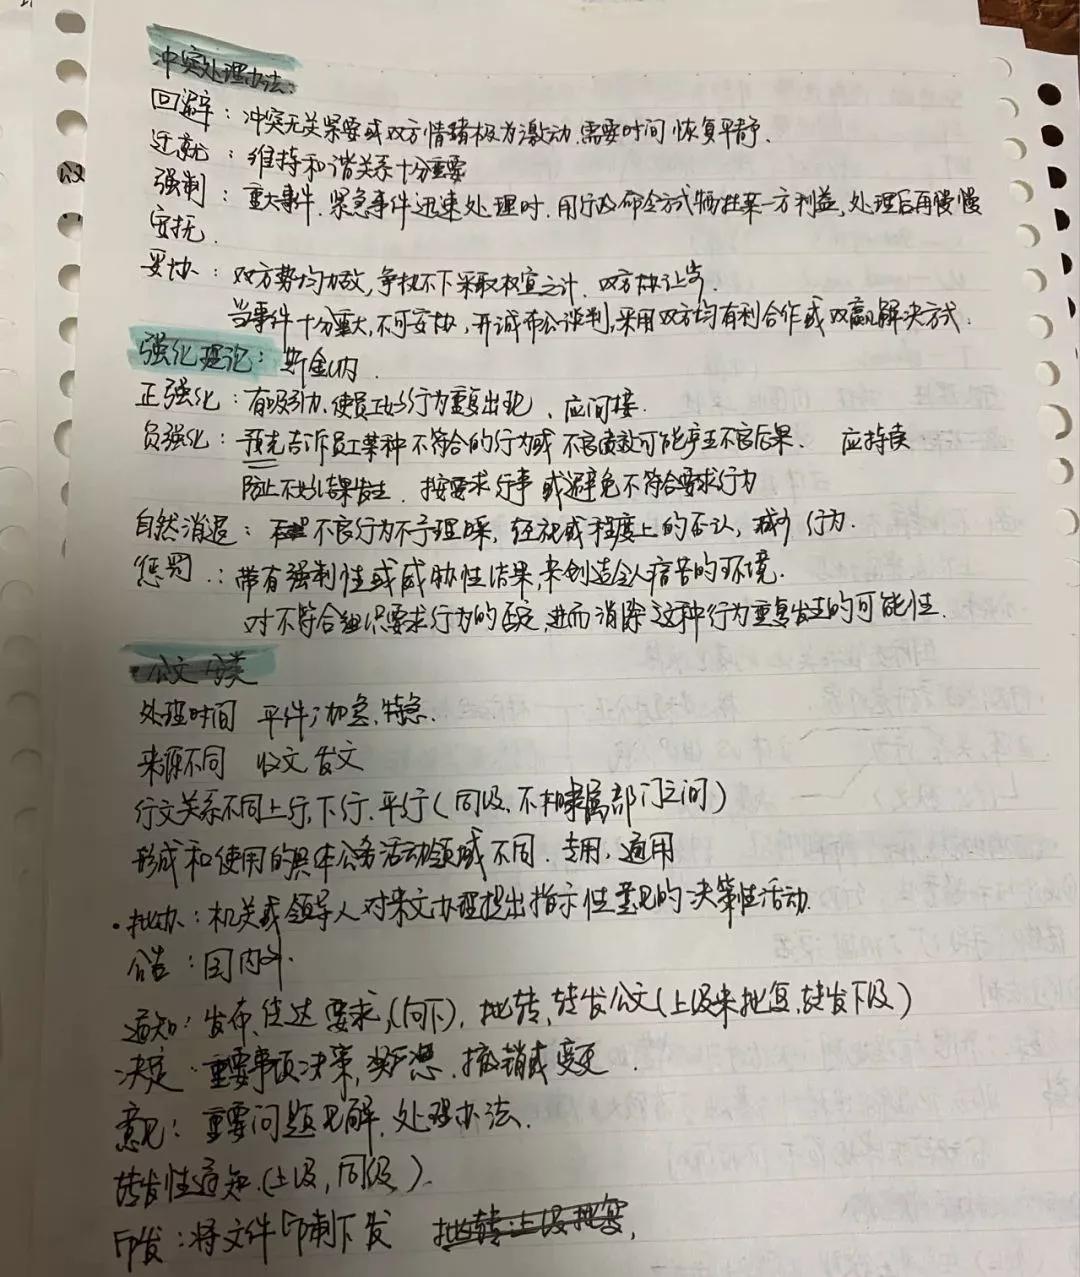 冲突处理办法:
回避:冲突无关紧要或双方情绪极为激动.需要时间恢复平静.
迁就:维持和谐关系十分重要
强制:重大事件.紧急事件迅速处理时.用行政命令方式牺牲某一方利益,处理后再慢慢
安抚.
妥协:双方势均力敌,争执不下采取权宜之计.双方都让步.
当事件十分重大,不可妥协,开诚布公谈判,采用双方均有利合作或双赢解决方式.
强化理论:斯金纳.
正强化:有吸引力.使员工好行为重复出现、应间接.
负强化:预先告诉员工某种不符合的行为或不良绩效可能产生不良后果. 应持续
防止不好结果发生.按要求行事或避免不符合要求行为
自然消退:不良行为不予理睬,轻视或程度上的否认,减少行为.
惩罚:带有强制性或威胁性结果,来创造令人痛苦的环境.
对不符合组织要求行为的否定,进而消除这种行为重复发生的可能性.
公文分类
处理时间 平件,加急,特急.
来源不同 收文 发文
行文关系不同上行,下行.平行(同级、不相隶属部门之间)
形成和使用的具体公务活动领域不同.专用,通用
·批办:机关或领导人对来文办理提出指示性意见的决策性活动.
公告:国内外.
通知:发布,传达要求,(向下),批转,转发公文(上级来批复,转发下级)
决定 重要事项决策,奖惩.撤销或变更.
意见:重要问题见解.处理办法.
转发性通知.(上级,同级).
印发:将文件印制下发
议